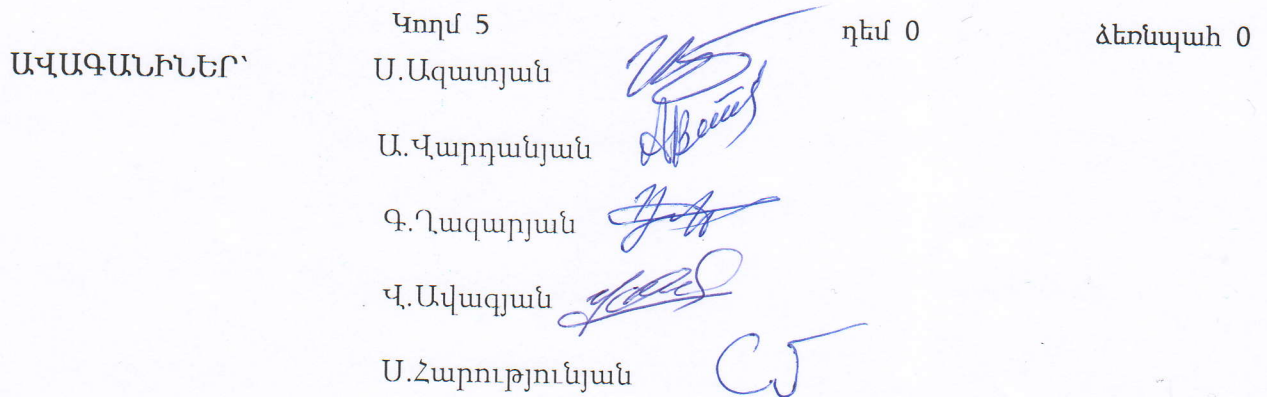 Կողմ 5 դեմ 0 ձեռնպահ 0
ԱՎԱԳԱՆԻՆԵՐ՝ Ս.Ազատյան
Ա.Վարդանյան
Գ.Ղազարյան
Վ.Ավագյան
Ս.Հարությունյան